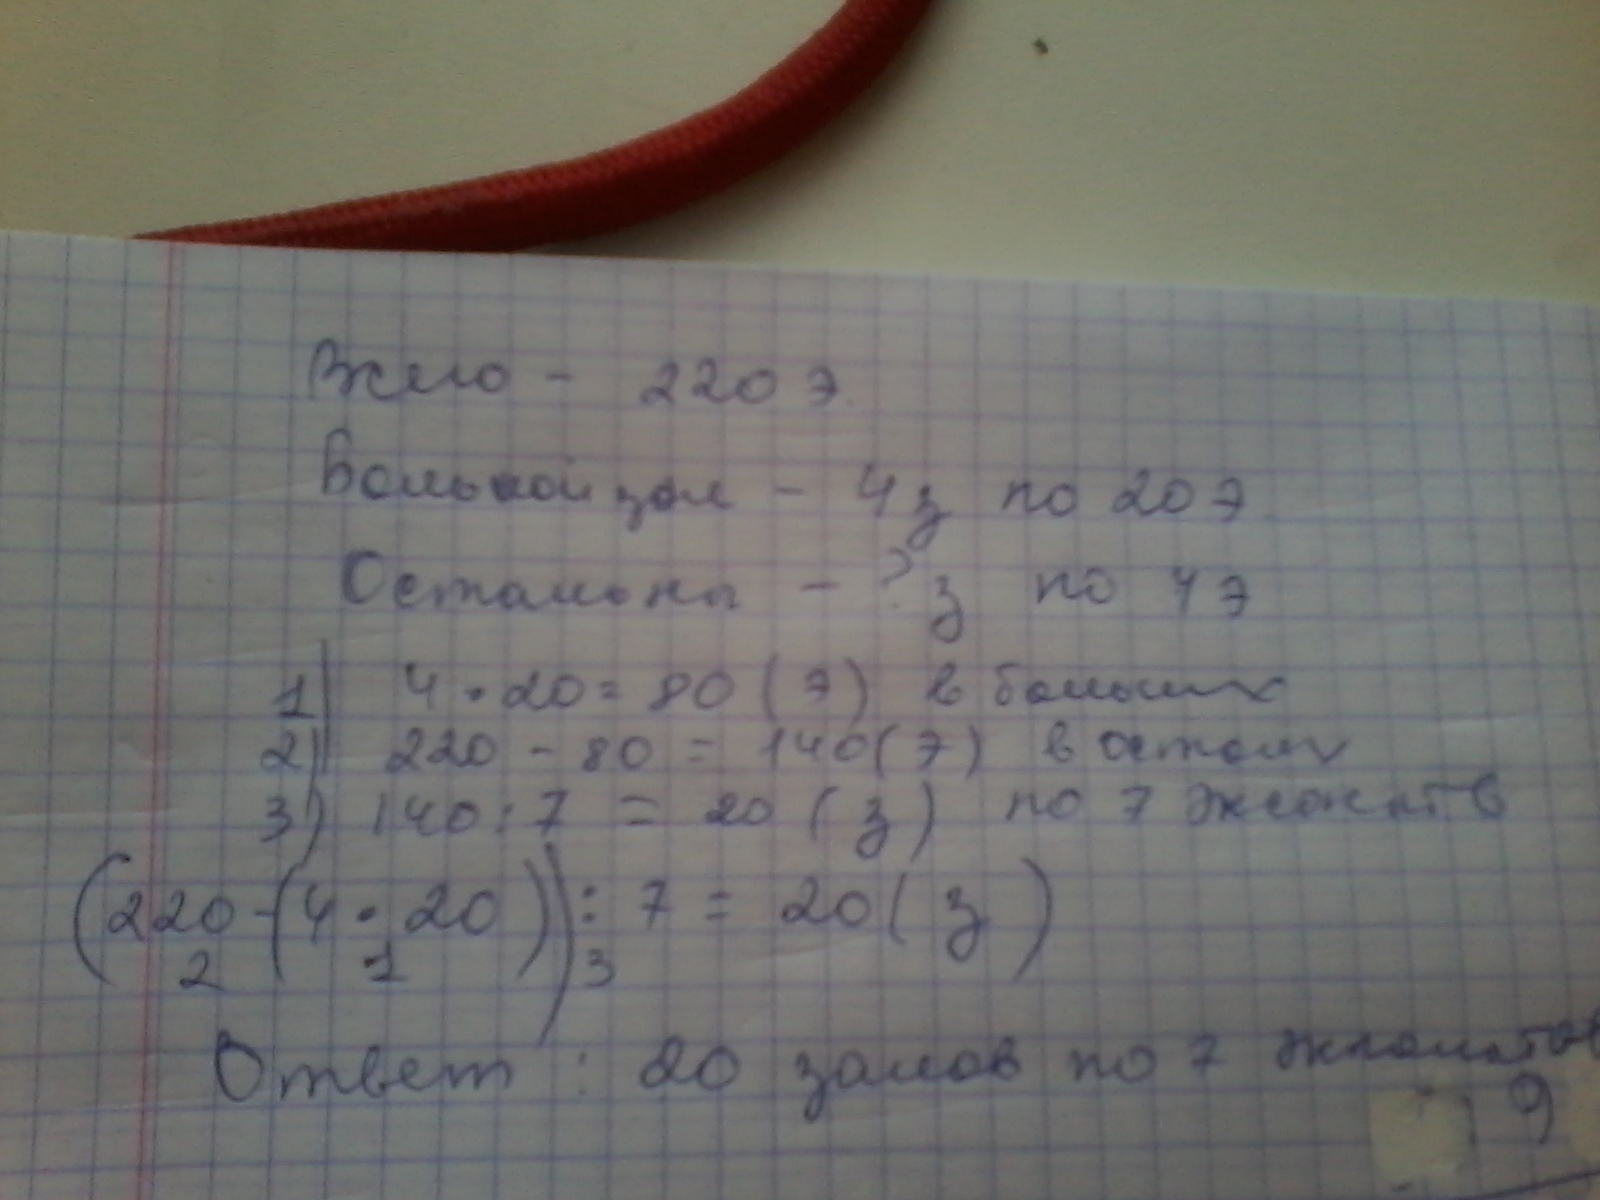 Всего - 220 э.
Большой зал - 4 з по 20 э
Остальны - ? з по 7 э
1) 4 · 20 = 80 (э) в больших
2) 220 - 80 = 140 (э) в осталь
3) 140 : 7 = 20 (з) по 7 экспонатов
(220 - (4 · 20)) : 7 = 20 (з)
2 1 3
Ответ : 20 залов по 7 экспонатов
9